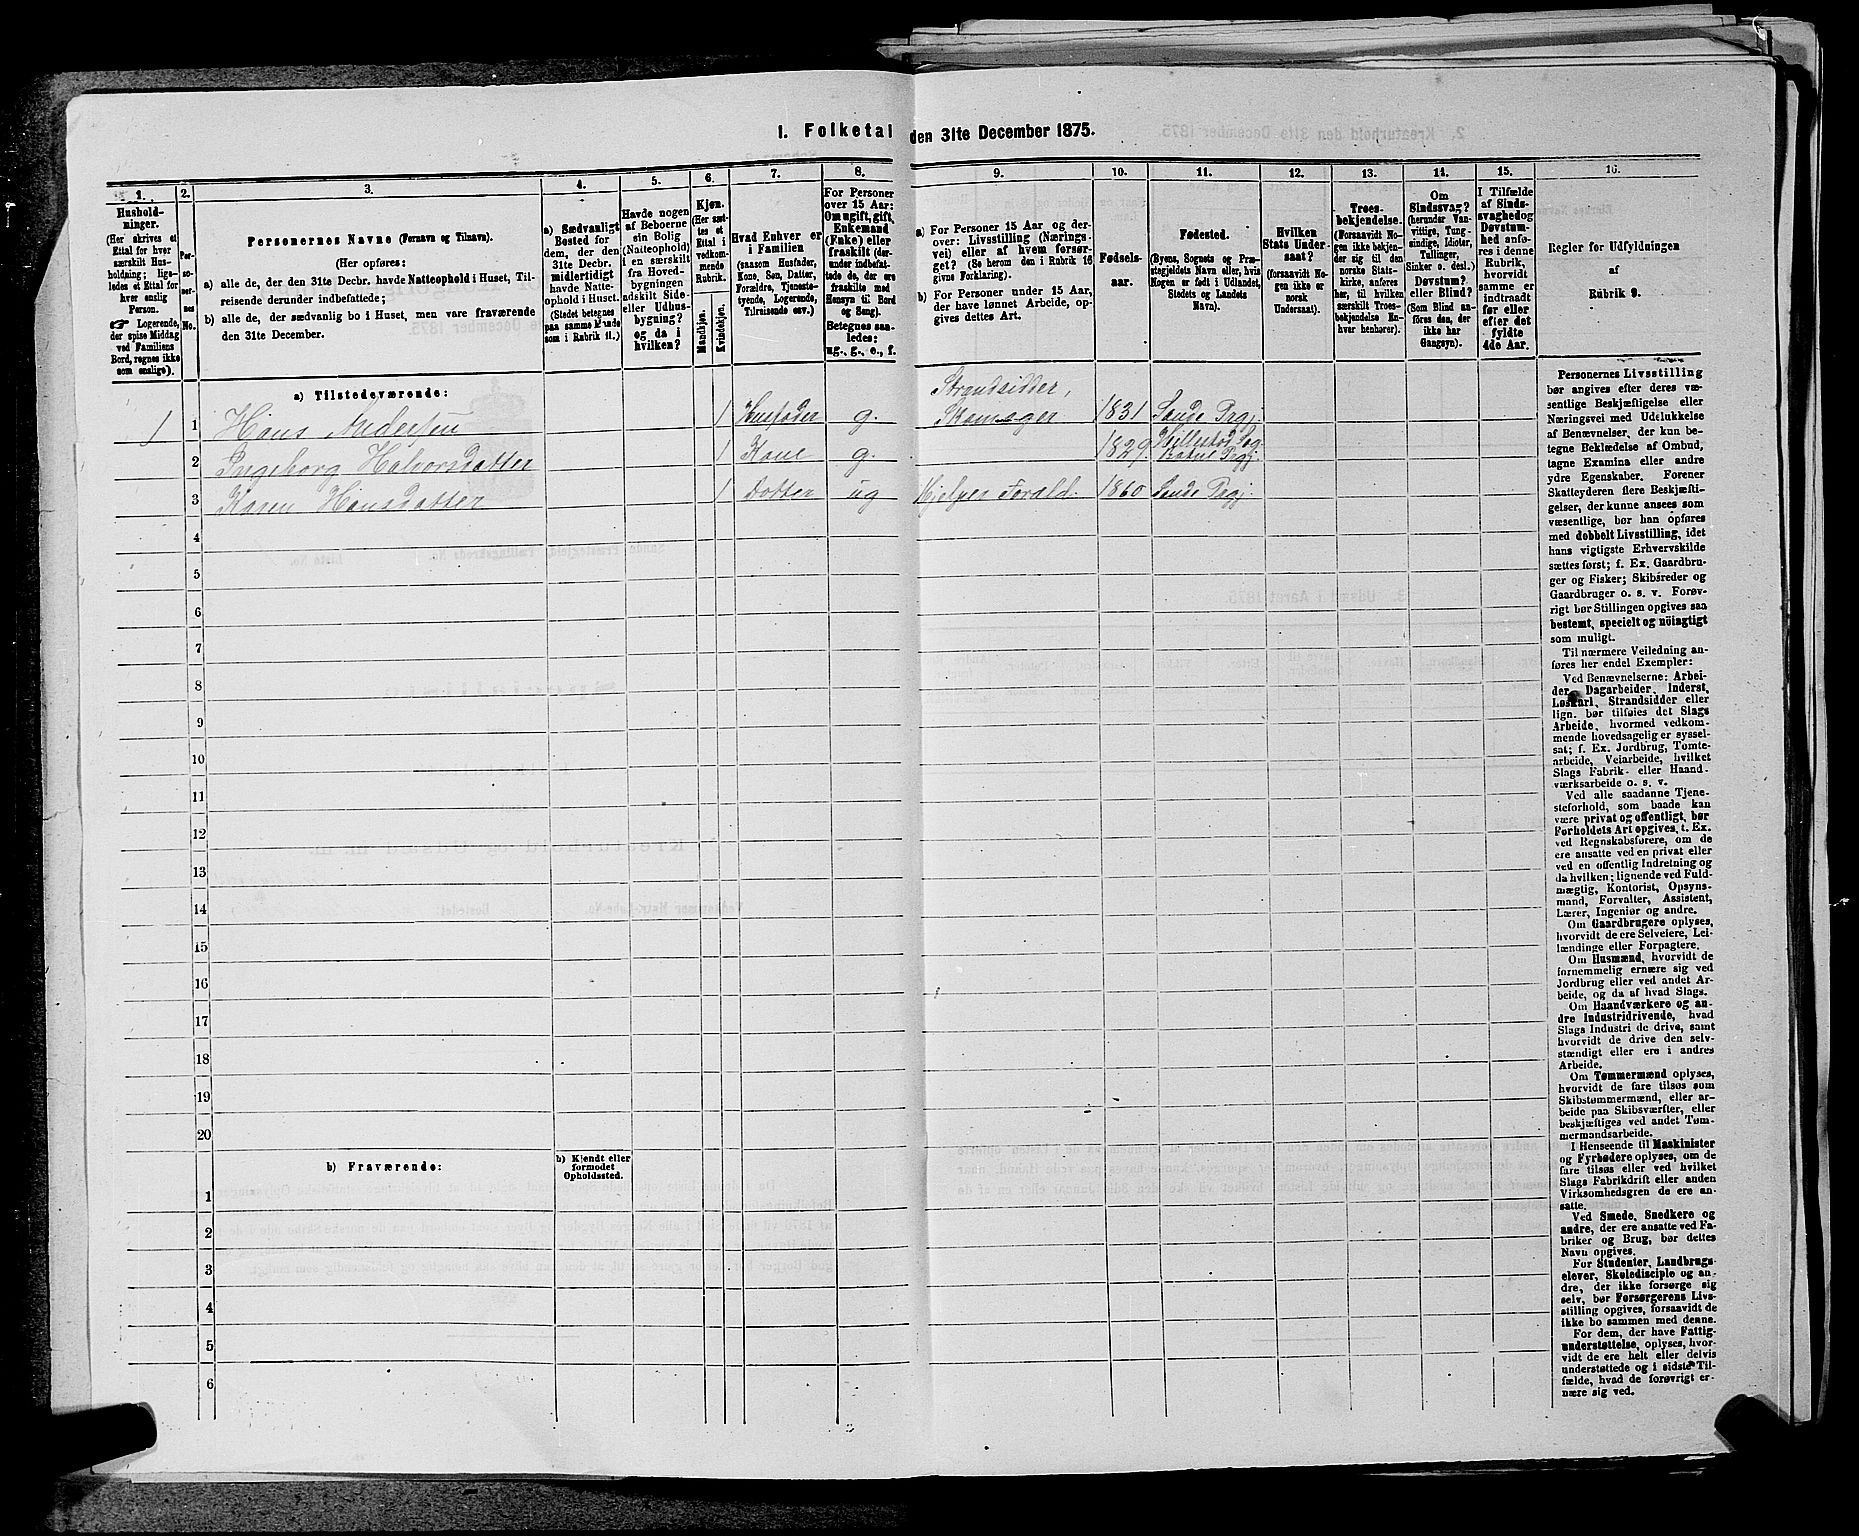 I. Folketal den 31te December 1875.
1.
Hushold-
ninger.
(Her skrives et
Ettal for hver
særskilt Hus-
holdning; lige-
ledes et Ettal for
hver enslig
Person.
☞ Logerende,
der spise Middag
ved Familiens
Bord, regnes ikke
som enslige).
2.
Per-
so-
ner-
nes
No.
3.
Personernes Navne (Fornavn og Tilnavn).
(Her opføres:
a) alle de, der den 31te Decbr. havde Natteophold i Huset, Til-
reisende derunder indbefattede;
b) alle de, der sædvanlig bo i Huset, men vare fraværende
den 31te December.
4.
a) Sædvanligt
Bosted for
dem, der den
31te Decbr.
midlertidigt
havde Natte-
ophold i Huset.
(Stedet betegnes
paa samme Maade
som i Rubrik 11.)
5.
Havde nogen
af Beboerne
sin Bolig
(Natteophold)
i en særskilt
fra Hoved-
bygningen
adskilt Side-
eller Udhus-
bygning?
og da i
hvilken?
6.
Kjøn.
(Her sæt-
tes et
Ettal i
vedkom-
mende
Rubrik.
Mandkjøn.
Kvindekjøn.
7.
Hvad Enhver er
i Familien
(saasom Husfader,
Kone, Søn, Datter,
Forældre, Tjeneste-
tyende, Logerende,
Tilreisende osv.)
8.
For Personer
over 15 Aar:
Om ugift, gift,
Enkemand
(Enke) eller
fraskilt (der-
under indbefat-
tede de, der ere
fraskilte med
Hensyn til Bord
og Seng).
Betegnes saa-
ledes:
ug., g., e., f.
9.
a) For Personer 15 Aar og der-
over: Livsstilling (Nærings-
vei) eller af hvem forsør-
get? (Se herom den i Rubrik 16
givne Forklaring).
b) For Personer under 15 Aar,
der have lønnet Arbeide, op-
gives dettes Art.
10.
Fødsels-
aar.
11.
Fødested.
(Byens, Sognets og Præ-
stegjeldets Navn eller, hvis
Nogen er født i Udlandet,
Stedets og Landets
Navn).
12.
Hvilken
Stats Under-
saat?
(forsaavidt No-
gen ikke er
norsk
Undersaat).
13.
Troes-
bekjendelse.
(Forsaavidt No-
gen ikke bekjen-
der sig til den
norske Stats-
kirke, anføres
her, til hvilken
særskilt Troes-
bekjendelse En-
hver henhører).
14.
Om
Sindssvag?
(herunder Van-
vittige, Tung-
sindige, Idioter,
Tullinger,
Sinker o. desl.)
Døvstum?
eller Blind?
(Som Blind an-
føres den, der
ikke har
Gangsyn).
15.
I Tilfælde
af Sinds-
svaghed og
Døvstum-
hed anfø-
res i denne
Rubrik,
hvorvidt
samme er
indtraadt
før eller
efter det
fyldte
4de Aar.
16.
Regler for Udfyldningen
af
Rubrik 9.
a) Tilstedeværende:
1 1 Hans Andersen 1 Husfader g. Strandsidder, Skomager 1831 Sande Prgj.
2 Ingeborg Halvorsdatter 1 Kone g. 1829 Hillestad Sog. Botne Prgj.
3 Karen Hansdatter 1 Datter ug Hjelper Forald. 1860 Sande Prgj.
4
5
6
7
8
9
10
11
12
13
14
15
16
17
18
19
20
b) Fraværende:
b) Kjendt eller
formodet
Opholdssted.
1
2
3
4
5
6
Personernes Livsstilling
bør angives efter deres væ-
sentlige Beskjæftigelse eller
Næringsvei med Udelukkelse
af Benævnelser, der kun be-
tegne Beklædelse af Ombud,
tagne Examina eller andre
ydre Egenskaber. Forener
Skatteyderen flere Beskjæfti-
gelser, der kunne ansees som
væsentlige, bør han opføres
med dobbelt Livsstilling, idet
hans vigtigste Erhvervskilde
sættes først; f. Ex. Gaardbru-
ger og Fisker; Skibsreder og
Gaardbruger o. s. v. Forøv-
rigt bør Stillingen opgives saa
bestemt, specielt og nöiagtigt
som muligt.
Til nærmere Veiledning an-
føres her endel Exempler:
Ved Benævnelserne: Arbei-
der, Dagarbeider, Inderst,
Løskarl, Strandsidder eller
lign. bør tilføies det Slags
Arbeide, hvormed vedkom-
mende hovedsagelig er syssel-
sat; f. Ex. Jordbrug, Tomte-
arbeide, Veiarbeide, hvilket
Slags Fabrik- eller Haand-
værksarbeide o. s. v.
Ved alle saadanne Tjene-
steforhold, som baade kan
være privat og offentligt, bør
Forholdets Art opgives, t. Ex.
ved Regnskabsførere, om de
ere ansatte ved en privat eller
ved en offentlig Indretning og
da hvilken; lignende ved Fuld-
mægtig, Kontorist, Opsyns-
mand, Forvalter, Assistent,
Lærer, Ingeniør og andre.
Om Gaardbrugere oplyses,
hvorvidt de ere Selveiere, Lei-
lændinge eller Forpagtere.
Om Husmænd, hvorvidt de
fornemmelig ernære sig ved
Jordbrug eller ved andet Ar-
beide, og da af hvad Slags.
Om Haandværkere og an-
dre Industridrivende, hvad
Slags Industri de drive, samt
hvorvidt de drive den selv-
stændigt eller ere i andres
Arbeide.
Om Tømmermænd oplyses,
hvorvidt de fare tilsøs som
Skibstømmermænd, eller ar-
beide paa Skibsværfter, eller
beskjæftiges ved andet Tøm-
mermandsarbeide.
I Henseende til Maskinister
og Fyrbødere oplyses, om de
fare tilsøs eller ved hvilket
Slags Fabrikdrift eller anden
Virksomhedsgren de ere an-
satte.
Ved Smede, Snedkere og
andre, der ere ansatte ved Fa-
briker og Brug, bør dettes
Navn opgives.
For Studenter, Landbrugs-
elever, Skoledisciple og an-
dre, der ikke forsørge sig
selv, bør Forsørgerens Livs-
stilling opgives, forsaavidt de
ikke bo sammen med denne.
For dem, der have Fattig-
understøttelse, oplyses, hvor-
vidt de ere helt eller delvis
understøttede og i sidste Til-
fælde, hvad de forøvrigt er-
nære sig ved.